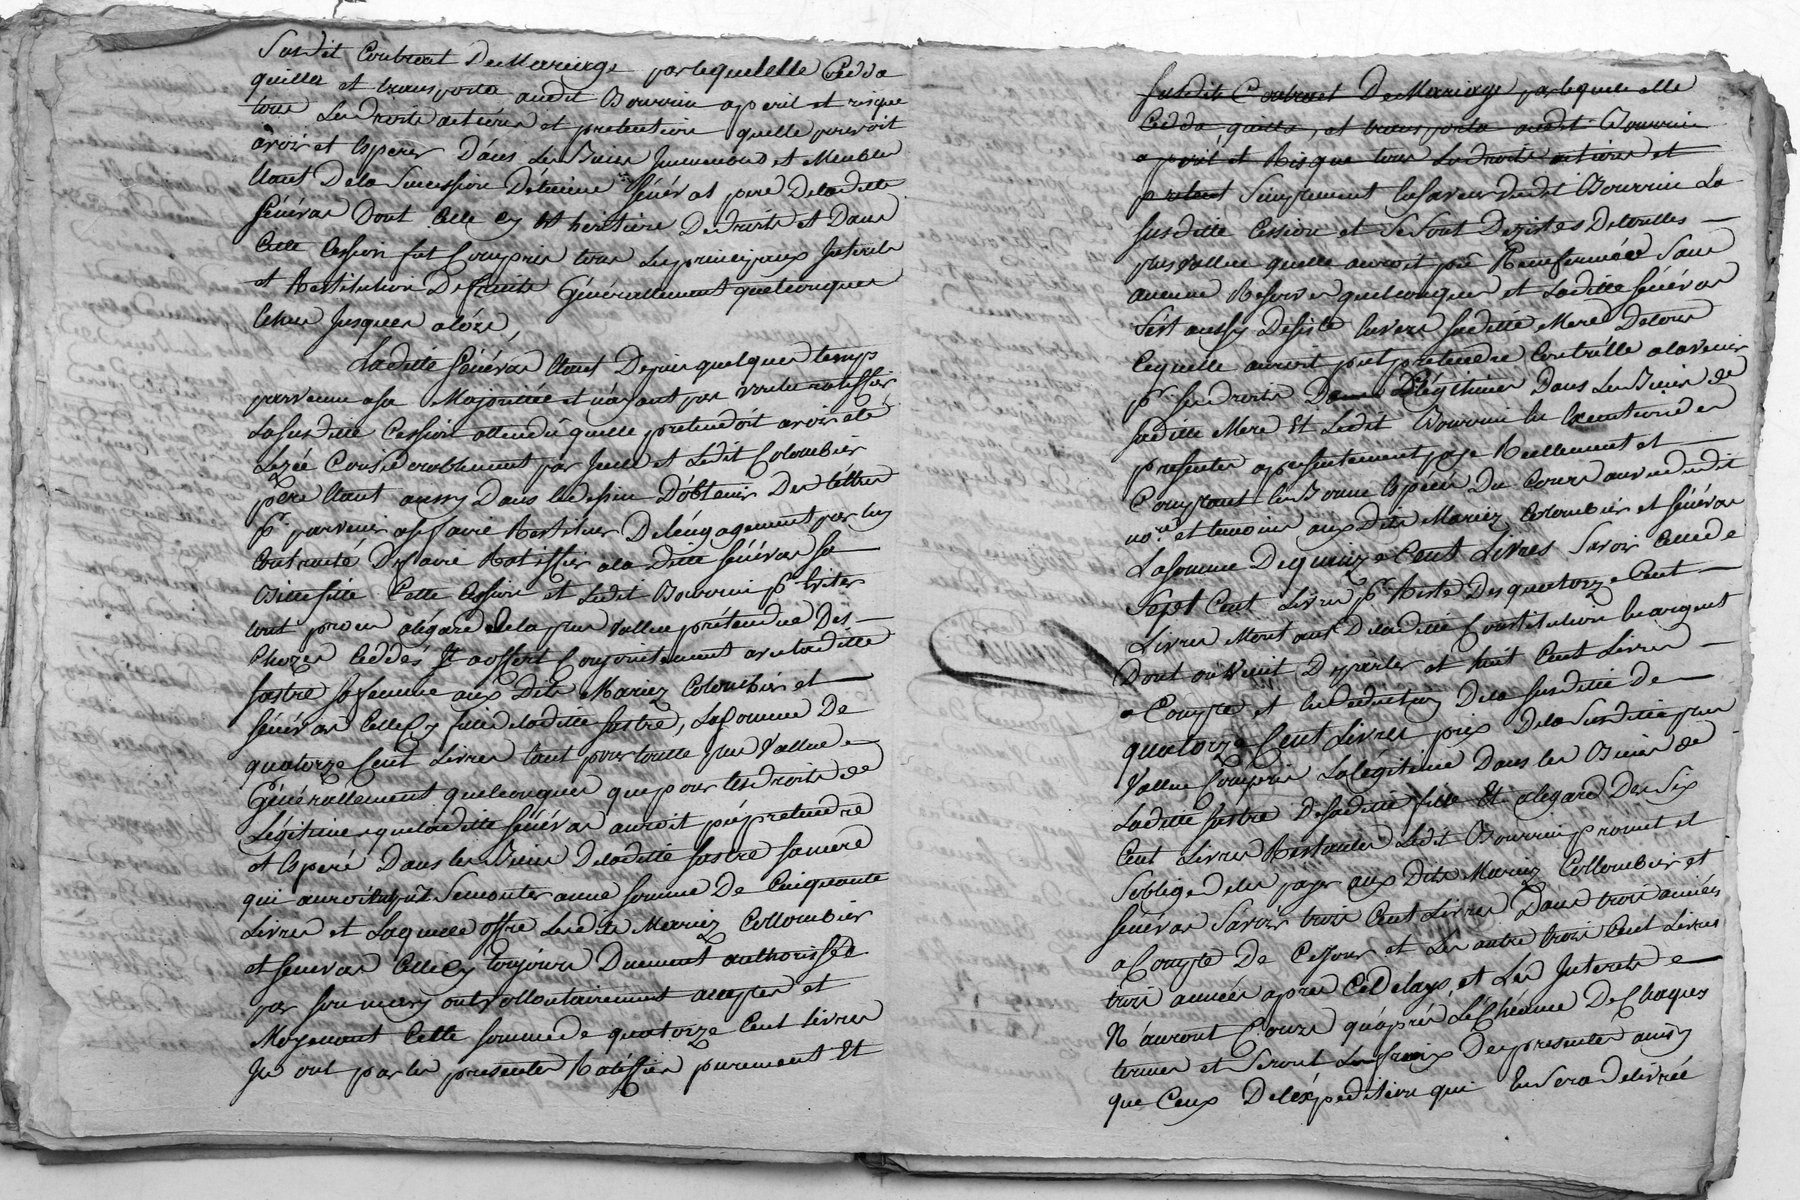 Susdit Contract De Mariage par lequel elle Cedda
quitta et transporta audit Bourrin a peril et risque
tous Les Droits actions et pretentions quelle pouvoit
avoir et Esperer Dans Les Biens Immeubles et Meubles
Etant De la Succession D'étienne Sénévas pere De ladite
Sénévas Dont Celle cy Est heritiere De droits et Dans
Cette Cession fut Compris tous Les principaux Interets
et Restitution De fruits Générallement quelconques
Echus Jusques alors,
Ladite Sénévas Etant Depuis quelques temps
parvenue a sa Majorité et n'ayant pas voulu ratiffier
La susditte Cession attendu quelle pretendoit avoir eté
Lezée Considerablement par Icelle et Ledit Colombier
père Etant aussy Dans le dessein D'obtenir Des lettres
pr. parvenir a se faire Restituer De l'engagement par luy
Contracté De faire Ratiffier a la Ditte Sénévas sa
Bellefille Cette Cession et Ledit Bourrin pr. Eviter
tout proces a légard de la plus Vallue prétendue Des
Chozes Ceddés Et a offert Conjointement avec laditte
fastre sa femme aux Dits Mariez Colombier et
Sénévas Celle Cy fille de laditte fastre, La somme De
quatorze Cent Livres tant pour toutte plus Vallue
Générallement quelconques que pour les droits de
Légitimes que laditte Sénévas auroit pu pretendre
et Esperé Dans les Biens De laditte fastre sa mere
qui auroit pût Se monter a une somme De Cinquante
Livres et Laquelle offre Lesdits Mariez Collombier
et Senevas Celle Cy toujours Duement authorissée
par son mary ont vollontairement acceptés et
Moyenant Cette somme de quatorze Cent livres
Ils ont par les presentes Ratiffiés purement Et
susdit Contract De Mariage par lequel elle
Cedda quitta et transporta audit Bourrin
a peril et Risque tous Les droits actions et
pretent Simplement En faveur dudit Bourrin La
susditte Cession et Se sont Dezistes De touttes
plus vallue quelle auroit pû Renfermée Sans
aucune Reserves quelconques et Laditte Sénévas
S'est aussy Desisté Envers saditte Mere De tous
Ce quelle auroit put pretendre Contr'elle a lavenir
pr. ses droits De Légitimes Dans Les Biens de
saditte Mere Et Ledit Bourrin En Execution des
presentes a presentement payé Reellement et
Comptant En Bonne Especes Du Cours au vu dudit
nore. et temoins aux Dits Mariez Colombier et Sénévas
La somme De quinze Cent Livres Savoir Celle de
Sept Cent Livres pr. Reste Des quatorze Cent
Livres Montant De laditte Constitution En argent
Dont on Vient De parler et huit Cent Livres
a Compte et En deduction De la susditte De
quatorze Cent Livres prix De la Susditte plus
Vallue Compris La légitime Dans les Biens de
Laditte fastre De saditte fille Et a légard Des Six
Cent Livres Restantes Ledit Bourrin promet et
S'oblige de les payer aux Dits Mariez Collombier et
Sénévas Savoir trois Cent Livres Dans trois années
a Compte De Ce Jour et Les autre trois Cent Livres
trois années apres Ce Delays, et Les Interets
N'auront Cours qu'après L'Echéance De Chaques
termes et Seront Les fraix Des presentes ainsy
que Ceux De l'éxpedition qui En Sera delivrée